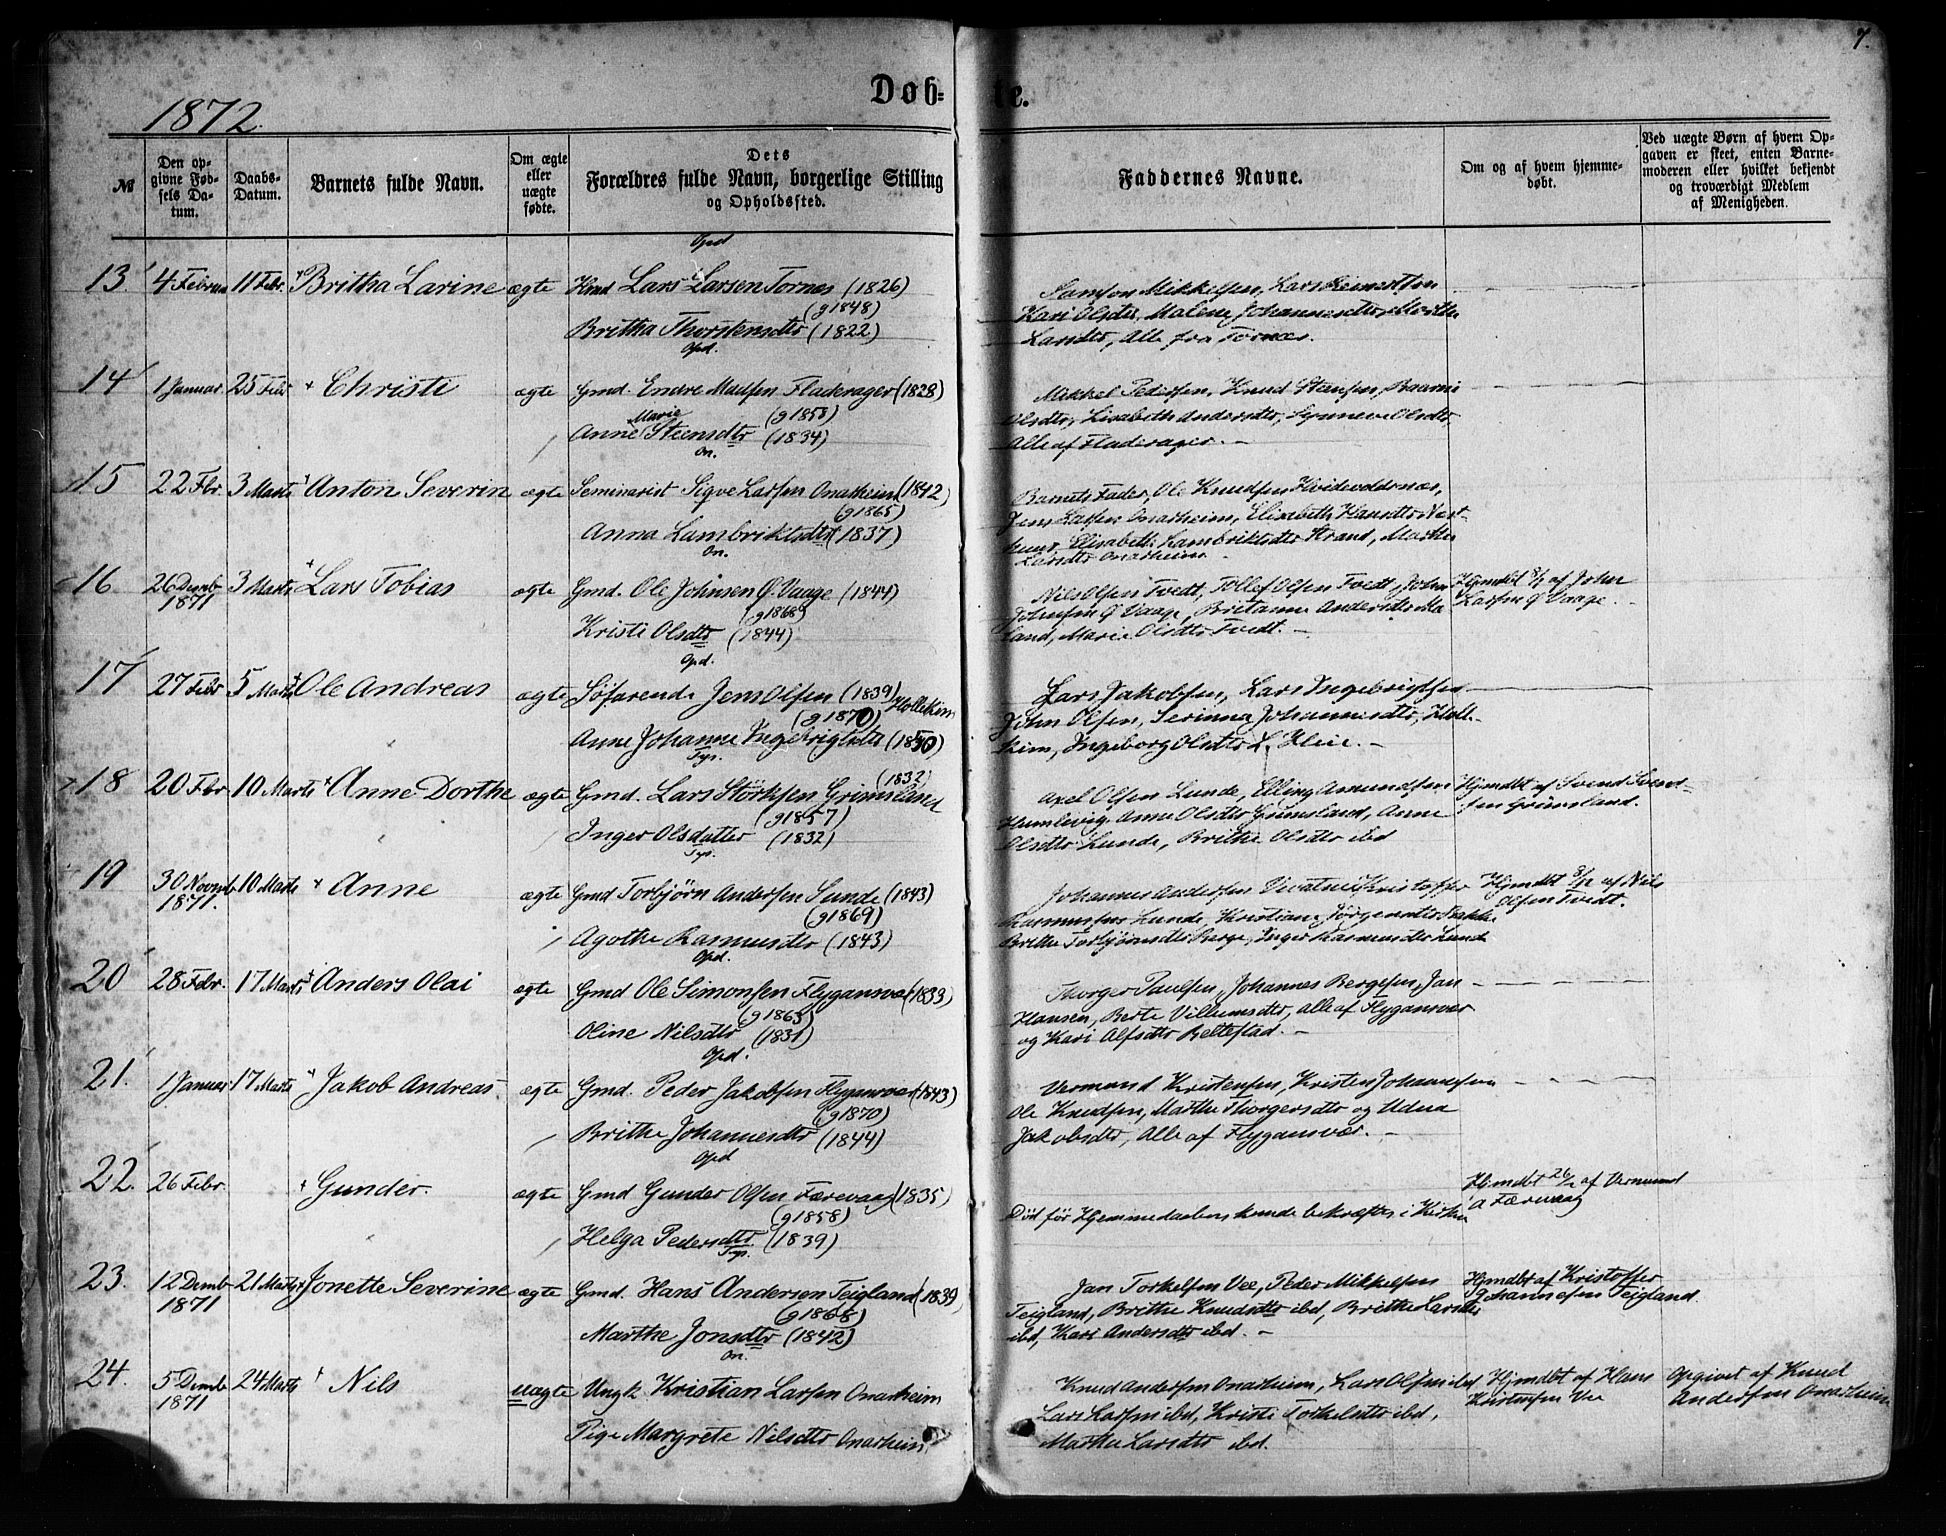 7.
Døb=
te.
1872.
№
Den opgivne Fødsels Datum.
Daabs-Datum.
Barnets fulde Navn.
Om ægte eller uægte fødte.
Dets
Forældres fulde Navn, borgerlige Stilling
og Opholdssted.
Faddernes Navne.
Om og af hvem hjemmedøbt.
Ved uægte Børn af hvem Opgaven er skeet, enten Barnemoderen eller hvilket bekjendt og troværdigt Medlem af Menigheden.
Opd
13. 4 Februa 11 Febr. Britha Larine ægte Hmd Lars Larsen Tornes (1826)
(g1848)
Britha Thorstensdtr (1822)
Samson Mikkelsen, Lars
Kari Olsdtr, Malene Johannesdtr, Marthe
Larsdtr, Alle fra Tornæs.
Opd.
14 1 Januar 25 Febr Christi ægte Gmd. Endre Madsen Fladerager (1828)
Marie (g1858)
Anne Steensdtr (1834)
Mikkel Pedersen, Knud Steensen,
Olsdtr, Lisabeth Andersdtr, Synneve Olsdtr,
Alle af Fladerager. –
On.
15 22 Fbr. 3 Marts Anton Severin ægte Seminarist Sigve Larsen Onarheim (1842)
(g1865)
Anna Lambriktsdtr (1837)
Barnets Fader, Ole Knudsen Hvidevoldnæs,
Jens Larsen Onarheim, Elisabeth Hansdtr
Elisabeth Lambriktsdtr Strand, Marthe
Larsdtr Onarheim –
On.
16 26 Decmb 1871 3 Marts Lars Tobias ægte Gmd. Ole Johnsen Ø. Vaage (1844)
(g1868)
Kristi Olsdtr (1844)
Nils Olsen Tvedt, Tollef Olsen Tvedt, John
Johnsen Ø Vaage, Britanne Andersdtr Ma
land, Marie Olsdtr Tvedt. –
Hjmdbt 8/1 af John
Larsen Ø Vaage.
Opd.
17 27 Febr 5 Marts Ole Andreas ægte Søfarende Jens Olsen (1839) Hollekim
(g1870)
Anne Johanne Ingebrigtsdtr (1850)
Lars Jakobsen, Lars Ingebrigtsen
John Olsen, Serinna Johannesdtr, Holle-
kim, Ingeborg Olsdtr L. Heie. –
Tys.
18 20 Fbr 10 Marts Anne Dorthe ægte Gmd. Lars Størksen Grimsland (1832)
(g1857)
Inger Olsdatter (1832)
Axel Olsen Lunde, Elling Amundsen
Humlevig, Anne Olsdtr Grimsland, Anne
Olsdtr Lunde, Brithe Olsdtr ibd
Hjmdbt af Svend Svend-
sen Grimsland.
Tys.
19 30 Novmb 1871. 10 Marts Anne ægte Gmd Torbjørn Andersen Sunde (1843)
(g1869)
Agothe Rasmusdtr (1843)
Johannes Andersen Kristoffer
Rasmussen Lunde, Kristiane Jørgensdtr
Brithe Torbjørnsdtr Berge, Inger Rasmusdtr Lunde
Hjmdbt 8/12 af Nils
Olsen Tvedt.
Opd.
20 28 Febr. 17 Marts Anders Olai ægte Gmd Ole Simonsen Flygansvær (1833)
(g1863)
Oline Nilsdtr (1831)
Thorger Paulsen, Johannes Bergesen, Jan
Hansen, Berte Villumsdtr, alle af Flygansvær
og Kari Alfsdtr Beltestad. –
Opd.
21. 1 Januar 17 Marts Jakob Andreas ægte Gmd. Peder Jakobsen Flygansvær (1843)
(g1870)
Brithe Johannesdtr (1844)
Vermund Kristensen, Kristen Johannesen
Ole Knudsen, Marthe Thorgersdtr og Udna
Jakobsdtr, Alle af Flygansvær. –
Opd
22. 26 Febr. Gunder. ægte Gmd Gunder Olsen Færevaag (1835)
(g1858)
Helga Pedersdtr (1839)
Død før Hjemmedaaben kunde bekræftes i Kirken
Hjmdbt 26/2 af Vermund
Færevaag
Tys.
23. 12 Decmb 1871 21 Marts Jonette Severine ægte Gmd. Hans Andersen Teigland (1839)
(g1868)
Marthe Jonsdtr (1842)
Jan Torkelsen Vee, Peder Mikkelsen
Teigland, Brithe Knudsdtr ibd, Brithe Larsdtr
ibd, Kari Andersdtr ibd. –
Hjmdbt af Kristoffer
Johannesen Teigland.
On.
24. 5 Decmb 1871 24 Marts Nils uægte Ungk Kristian Larsen Onarheim
Pige Margrete Nilsdtr Onarheim.
Knud Andersen Onarheim, Lars Olsen ibd
Lars Larsen ibd, Kristi Torkelsdtr ibd,
Marthe Larsdtr ibd.
Hjmdbt af Hans
Kristensen Vee
Opgivet af Knud
Andersen Onarheim